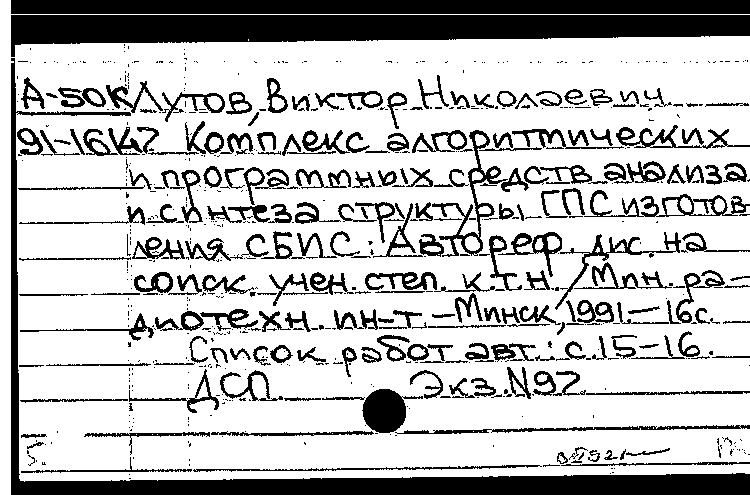 А-50К Лутов, Виктор Николаевич
91-16147 Комплекс алгоритмических
и программных средств анализа
и синтеза структуры ГПС изготов
ления СБИС: Автореф. дис. на
соиск. учен. степ. к.т.н. / Мин. ра-
диотехн. ин-т. – Минск, 1991. – 16с.
Список работ авт.: с.15-16.
ДСП. Экз. N97
5.